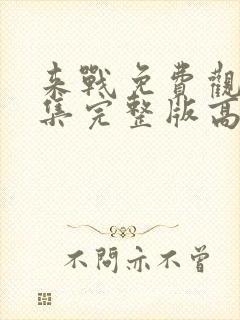 来戰免費觀
集完整版高
不問亦不曾